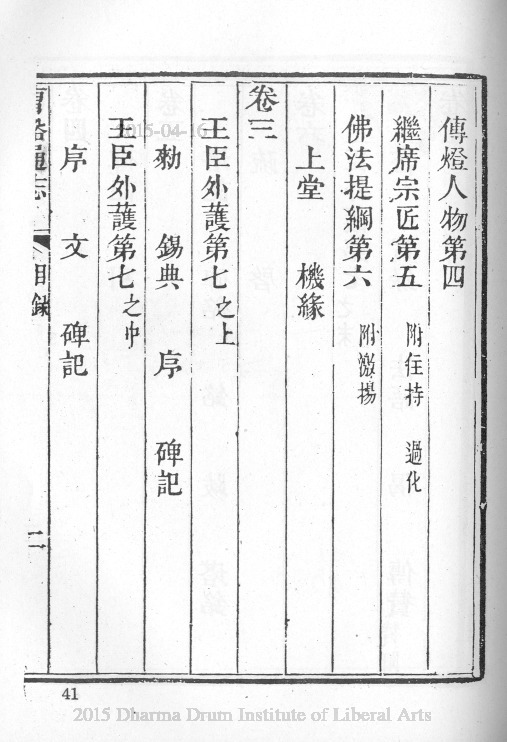 傳燈人物第四
繼席宗匠第五 附住持 過化
佛法提綱第六 附激揚
上堂 機緣
卷三
王臣外護第七之上
勑 錫典 序 碑記
王臣外護第七之中
序 文 碑記
曹谿通志 目錄 二
2015-04-16
41
2015 Dharma Drum Institute of Liberal Arts